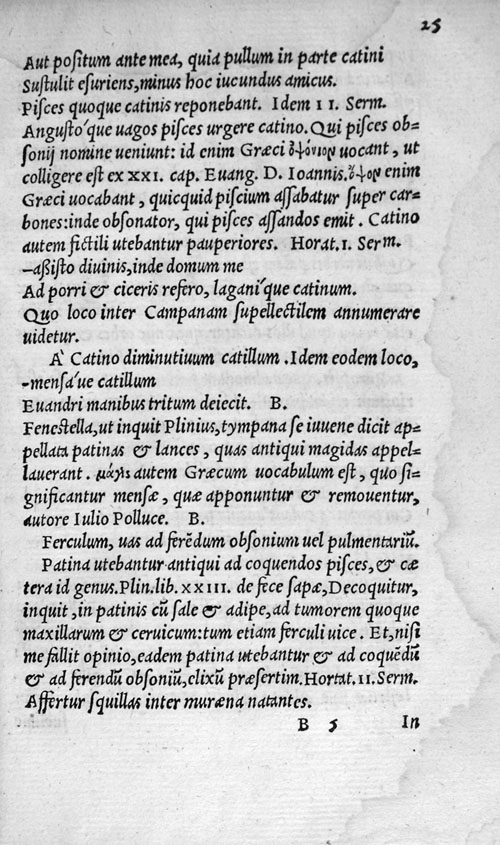 25
Aut positum ante mea, quia pullum in parte catini
Sustulit esuriens, minus hoc iucundus amicus.
Pisces quoque catinis reponebant. Idem II. Serm.
Angusto´que uagos pisces urgere catino. Qui pisces ob-
sonij nomine ueniunt: id enim Græci ὀψόνιον uocant, ut
colligere est ex XXI. cap. Euang. D. Ioannis. ὄψον enim
Græci uocabant, quicquid piscium assabatur super car-
bones: inde obsonator, qui pisces assandos emit. Catino
autem fictili utebantur pauperiores. Horat. I. Serm.
–aßisto diuinis, inde domum me
Ad porri & ciceris refero, lagani´que catinum.
Quo loco inter Campanam supellectilem annumerare
uidetur.
A` Catino diminutiuum catillum. Idem eodem loco,
-mensa´ue catillum
Euandri manibus tritum deiecit. B.
Fenestella, ut inquit Plinius, tympana se iuuene dicit ap-
pellata patinas & lances, quas antiqui magidas appel-
lauerant. μάγις autem Græcum uocabulum est, quo si-
gnificantur mensæ, quæ apponuntur & remouentur,
autore Iulio Polluce. B.
Ferculum, uas ad ferēdum obsonium uel pulmentariū.
Patina utebantur antiqui ad coquendos pisces, & cæ
tera id genus. Plin. lib. XXIII. de fece sapæ, Decoquitur,
inquit, in patinis cū sale & adipe, ad tumorem quoque
maxillarum & ceruicum: tum etiam ferculi uice. Et, nisi
me fallit opinio, eadem patina utebantur & ad coquēdū
& ad ferendū obsoniū, elixū præsertim. Hortat. II. Serm.
Affertur squillas inter muræna natantes.
B 5 In